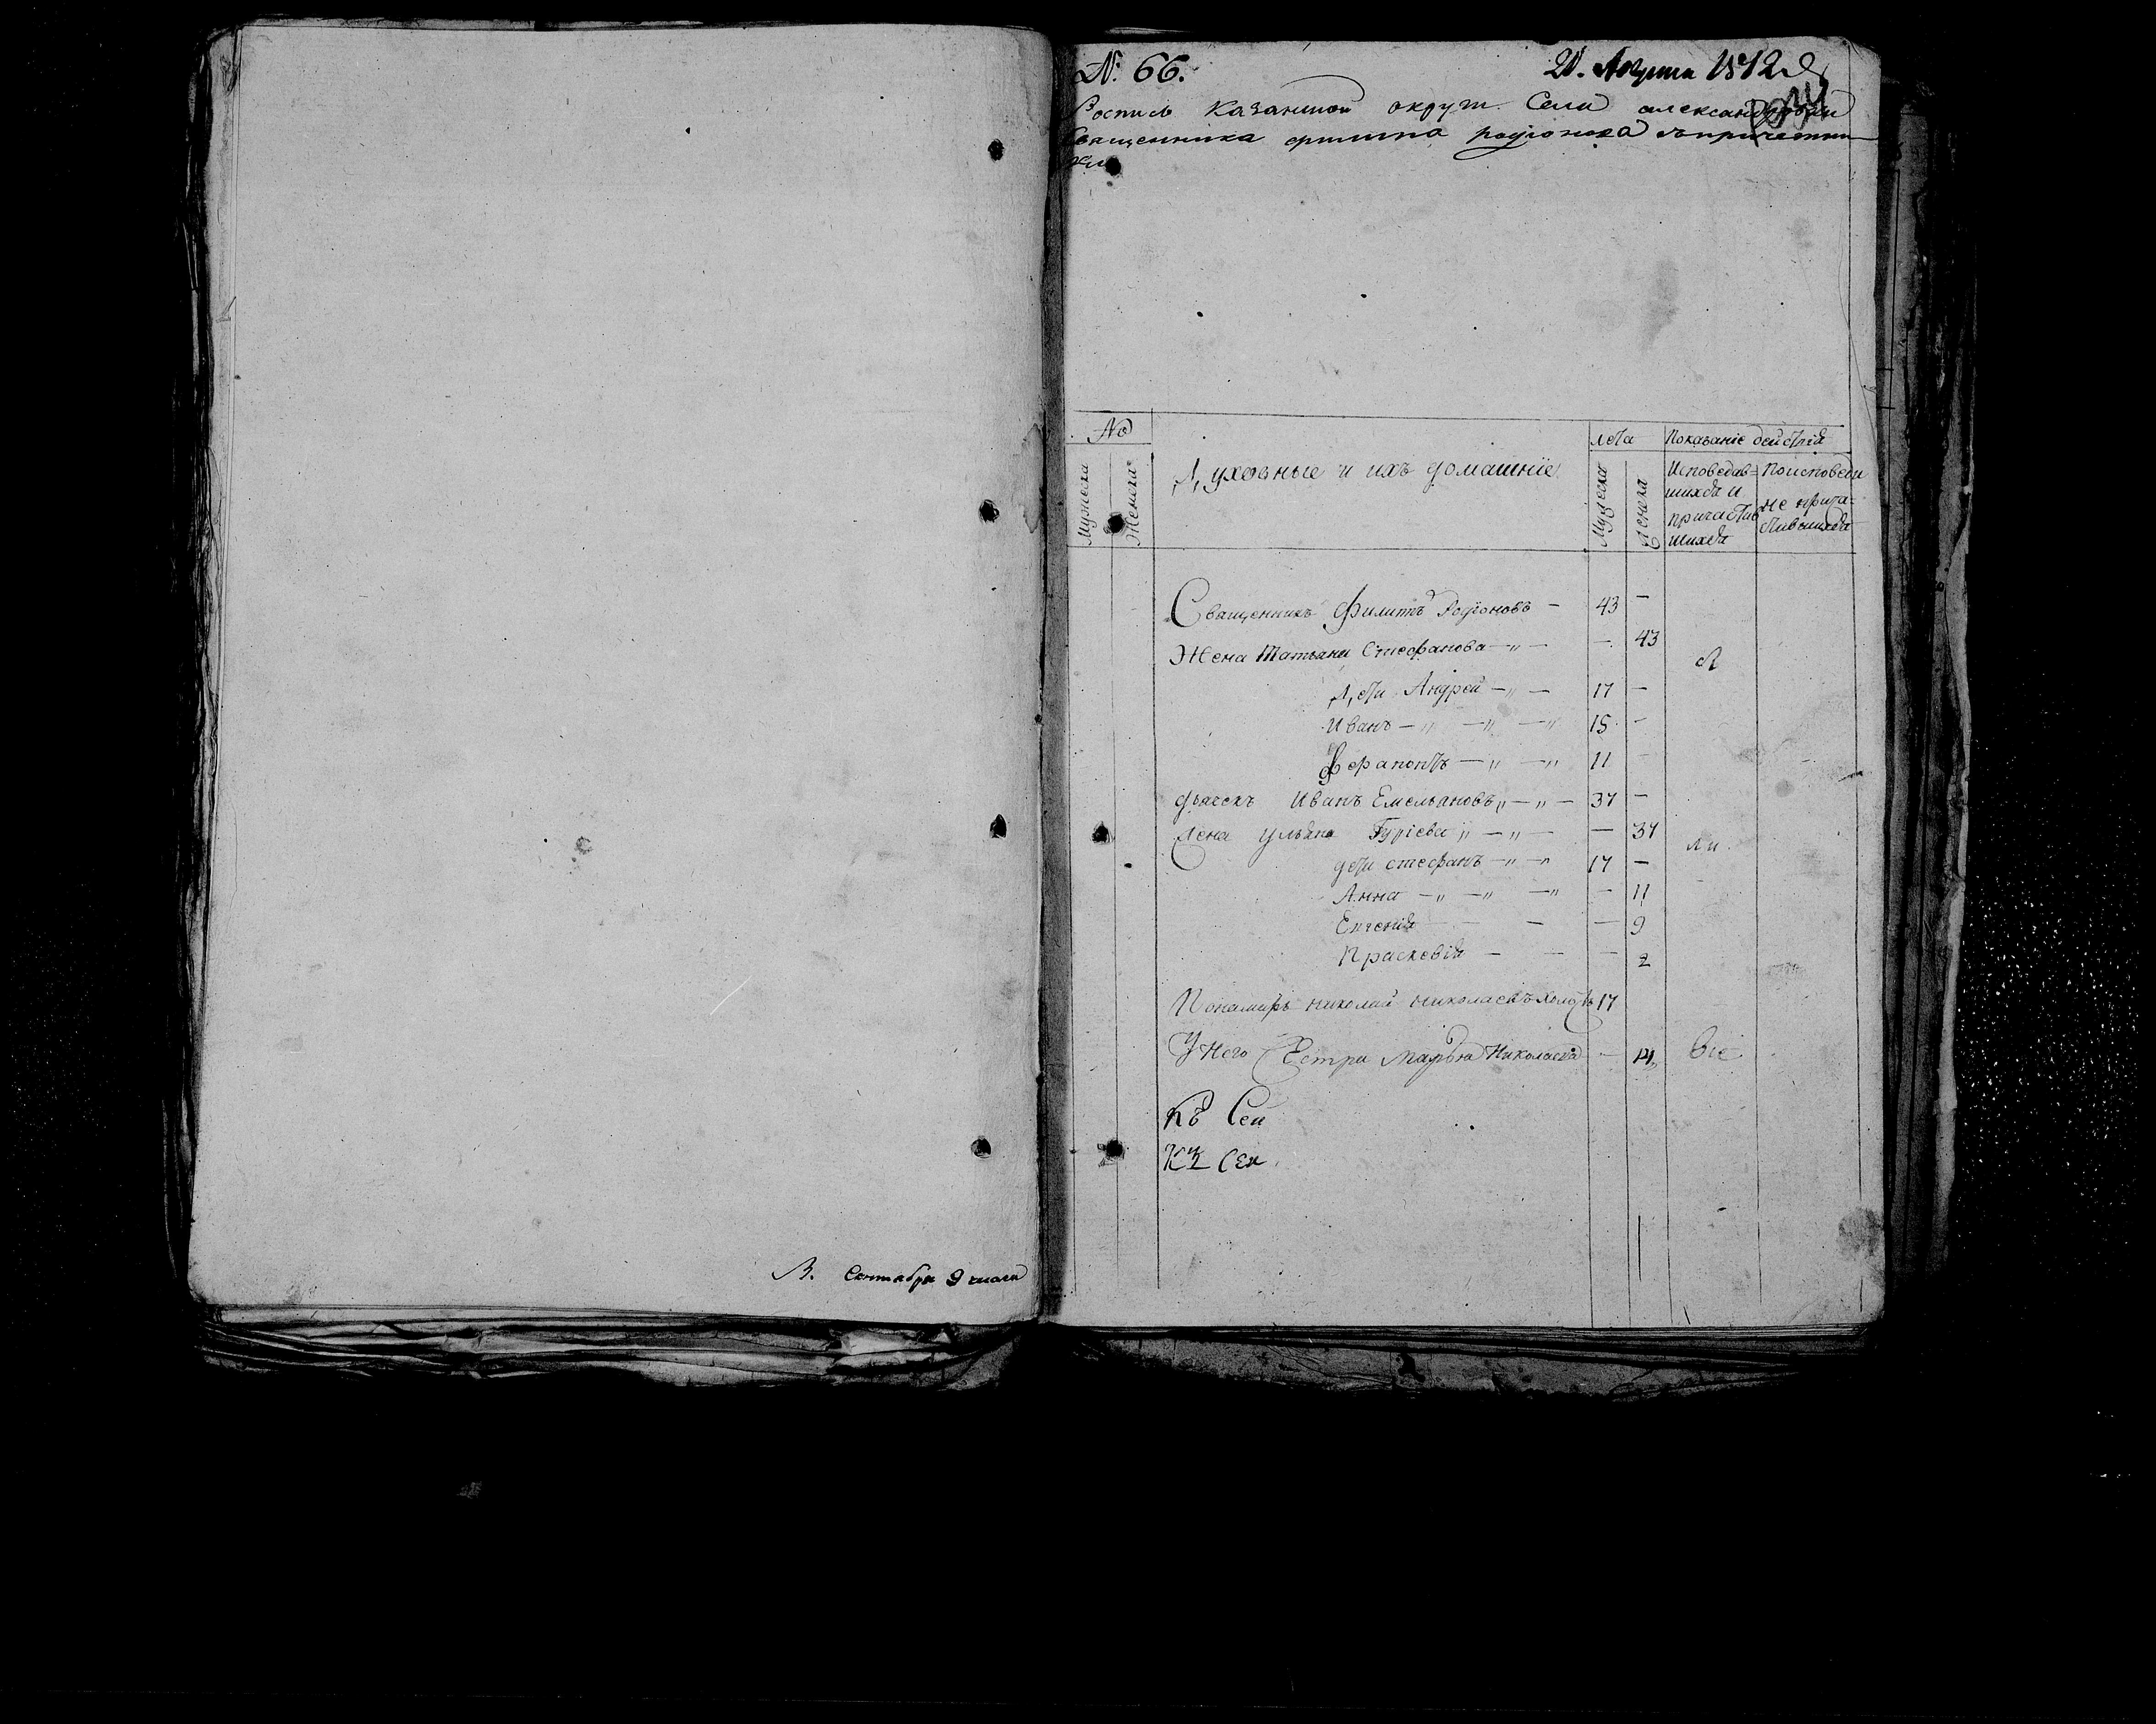 В. Сентября 9 числа
№ 66.
21. Августа 1812
Роспись Казанской округи Села александровки
Священника филипа родионова съ причетни
ками
№
Мужеска
Женска
Духовные и ихъ домашніе
лета
Мужеска
Женска
Показаніе действія
Исповедав=
шихся и
причастив
шихся
По исповеди
не прича=
стившихся
Священникъ Филиппъ Родіоновъ — 43 —
Жена Татьяна Стефанова —„— — 43
Дети Андрей —„— 17 —
Иванъ —„ —„ —„ 15 —
Ферапонтъ —„ —„ 11 —
дьячекъ Иванъ Емельяновъ „—„— 37 —
Жена ульяна Гуріева „—„— — 37
дети стефанъ —„—„ 17 —
Анна —„ —„ —„ — 11
Евгенія — — — 9
Прасковія — — — 2
Понамарь николай николаевъ холостъ 17
У Него Сестра Марья Николаева — 14 все
Къ Сей
Къ Сей